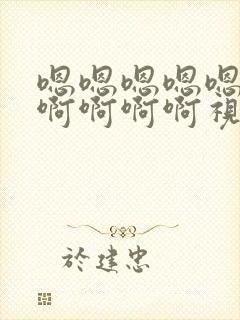 嗯嗯嗯嗯嗯
啊啊啊啊視
於建忠